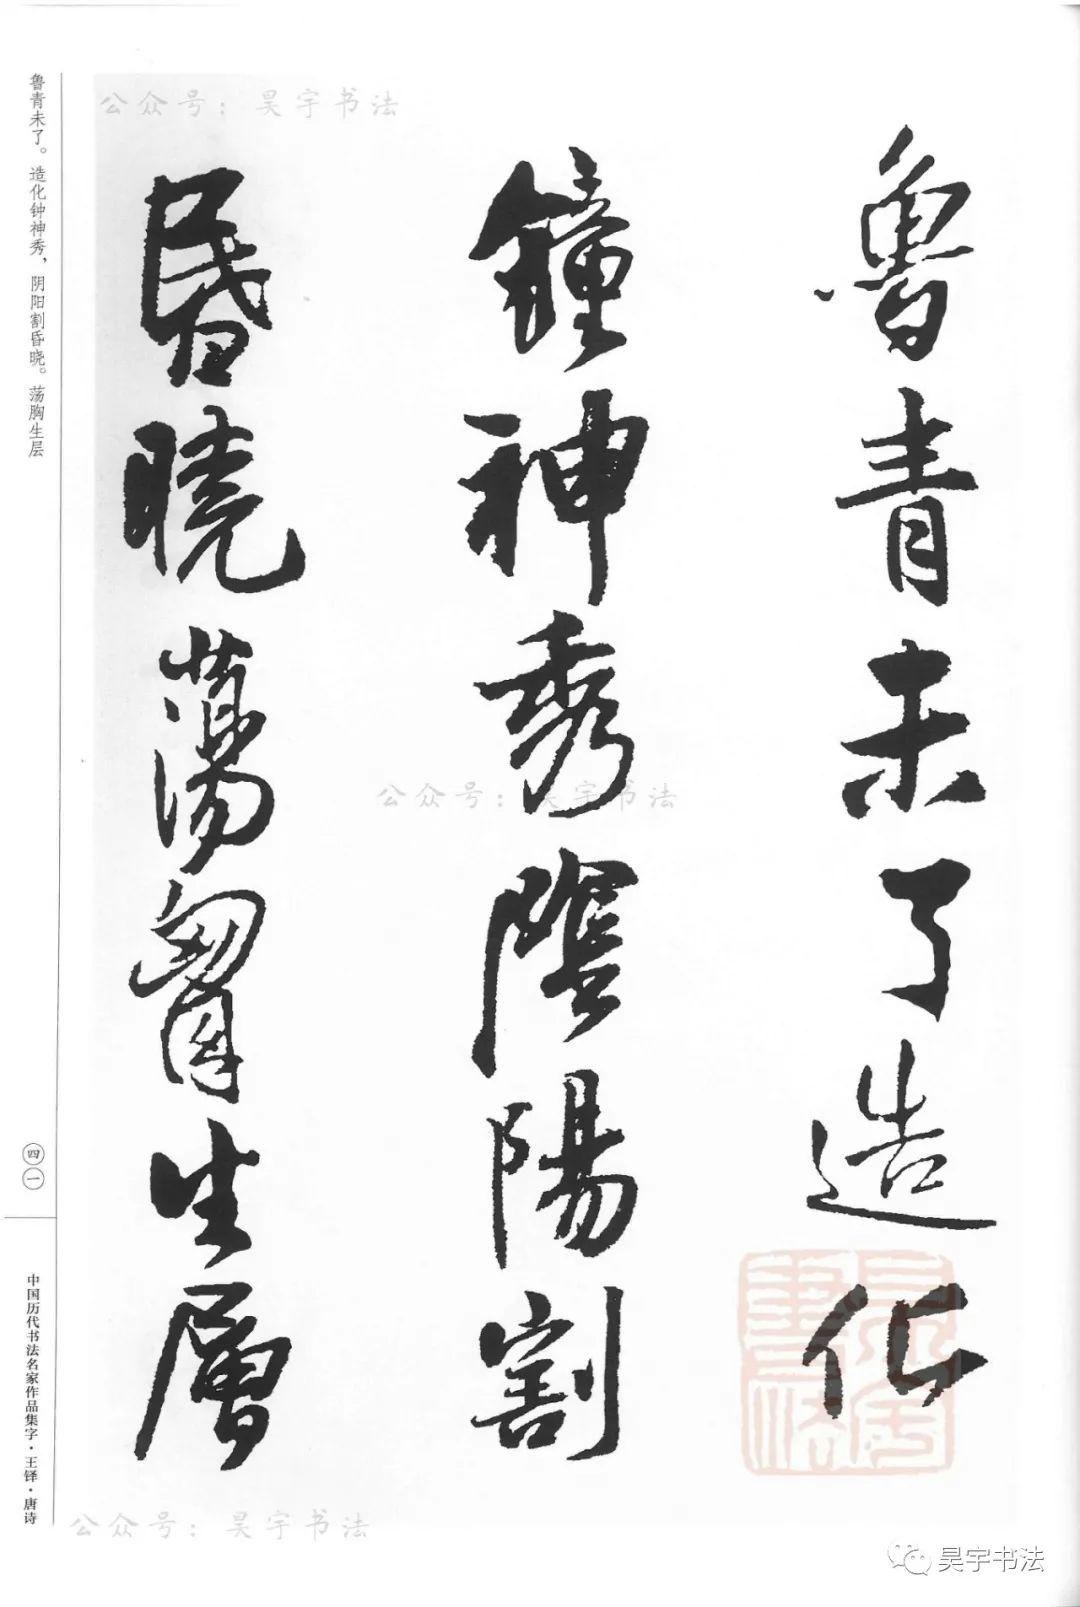 公众号：昊宇书法
魯青未了造化
鐘神秀陰陽割
昏曉蕩胷生層
鲁青未了。造化钟神秀，阴阳割昏晓。荡胸生层
公众号：昊宇书法
四一
中国历代书法名家作品集字·王铎·唐诗
公众号：昊宇书法
昊宇書法
昊宇书法